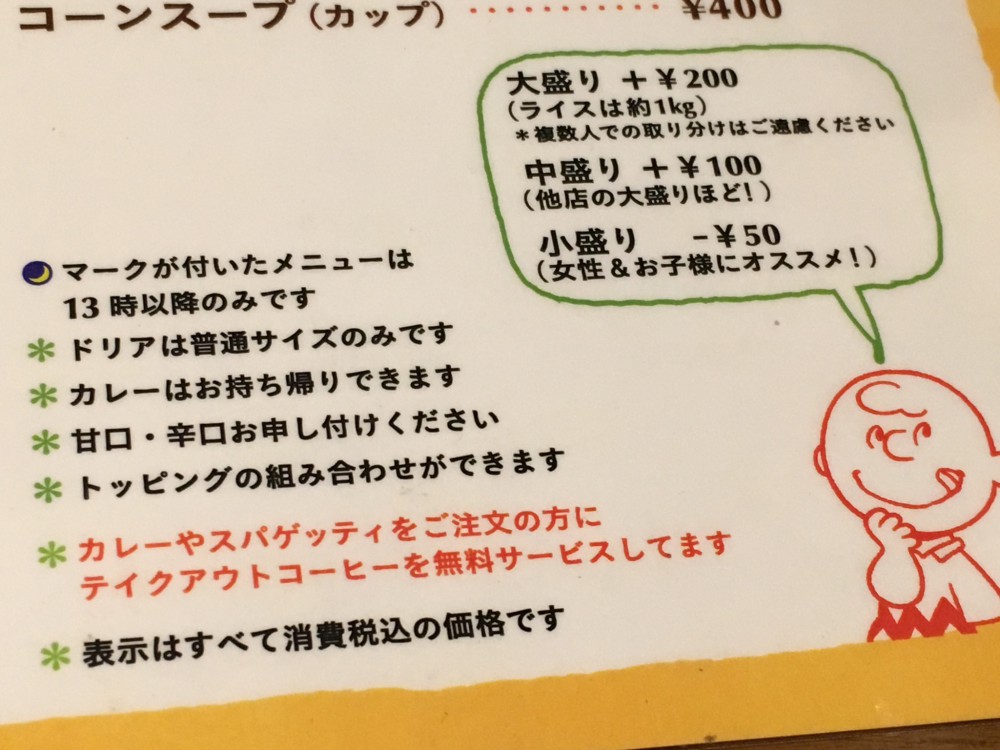 コーンスープ(カップ) ············ ¥400
大盛り +¥200
(ライスは約1kg)
*複数人での取り分けはご遠慮ください
中盛り +¥100
(他店の大盛りほど!)
小盛り -¥50
(女性&お子様にオススメ!)
マークが付いたメニューは
13時以降のみです
* ドリアは普通サイズのみです
* カレーはお持ち帰りできます
* 甘口・辛口お申し付けください
* トッピングの組み合わせができます
* カレーやスパゲッティをご注文の方に
テイクアウトコーヒーを無料サービスしてます
* 表示はすべて消費税込の価格です